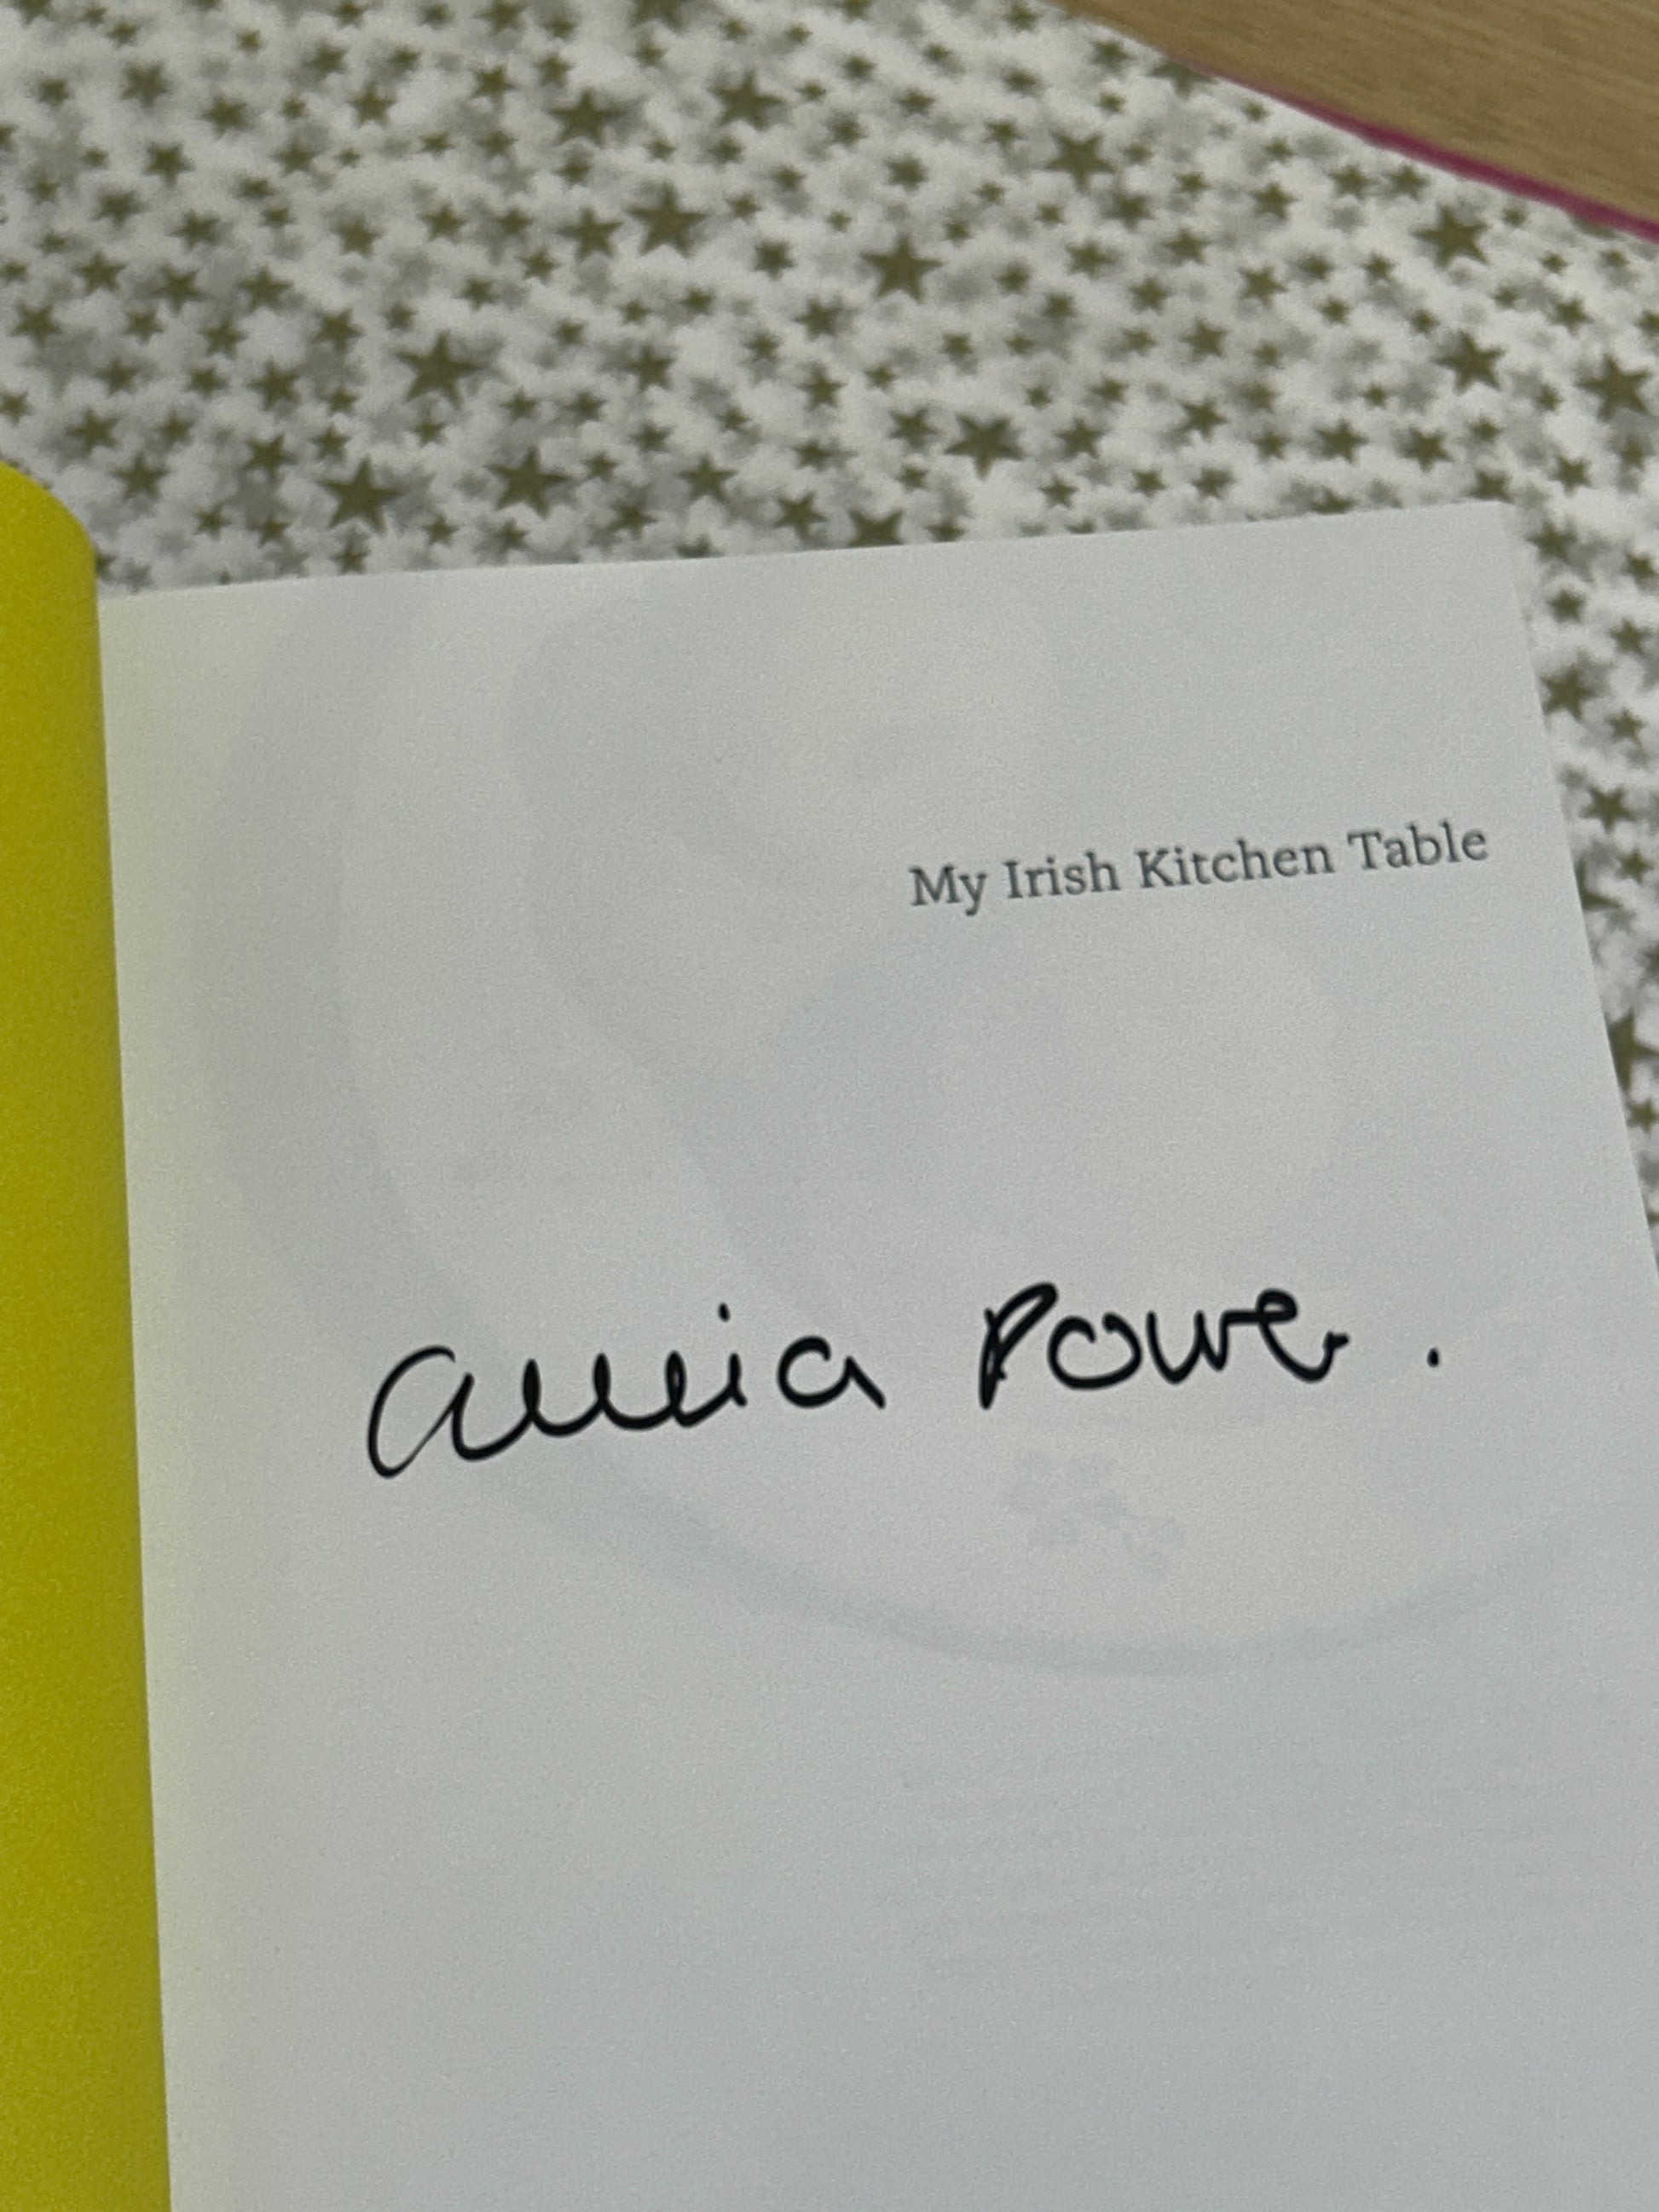 My Irish Kitchen Table
Annia Power.